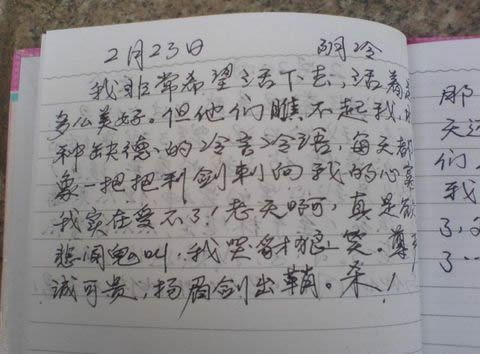 2月23日 阴冷
我非常希望活下去，活着
多么美好。但他们瞧不起我，
种缺德的冷言冷语，每天都
像一把把利剑刺向我的心窝
我实在受不了！老天啊，真是欲
悲闻鬼叫，我哭豺狼笑。尊
诚可贵，扬眉剑出鞘。杀！
那
天
们
我
了，
了…